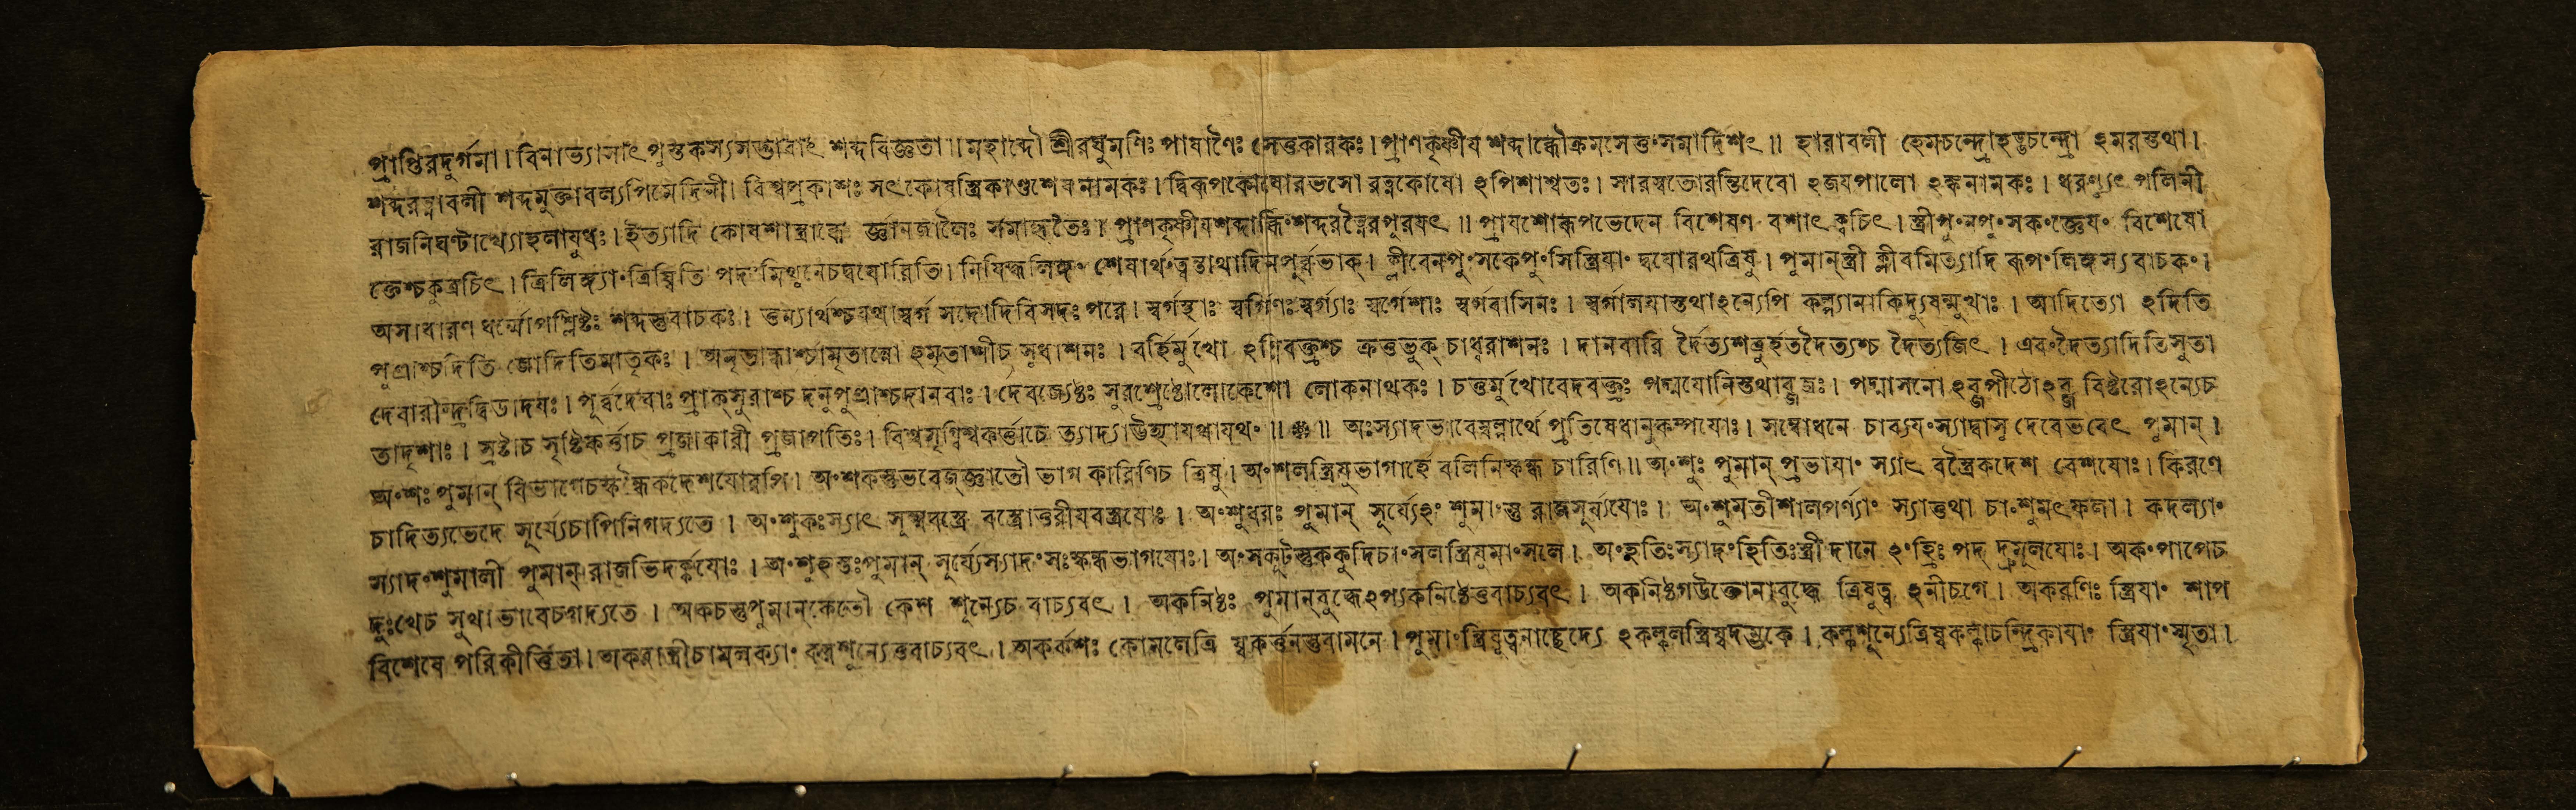 প্রাপ্তিরদুর্গমা। বিনাভ্যাসাৎ পুস্তকস্যসদ্ভাবাৎ শব্দবিজ্ঞতা॥ মহাব্দৌ শ্রীরঘুমণিঃ পাষাণৈঃ সেত্তুকারকঃ। প্রাণকৃষ্ণীয শব্দাব্ধৌক্রমসেত্তুংসমাদিশৎ॥ হারাবলী হেমচন্দ্রোহড্ডচন্দ্রো ঽমরস্তথা।
শব্দরত্নাবলী শব্দমুক্তাবল্যপিমেদিনী। বিশ্বপ্রকাশঃ সৎকোষস্ত্রিকাণ্ডশেষনামকঃ। দ্বিরূপকোষোরভসো রত্নকোষো ঽপিশাশ্বতঃ। সারস্বতোরন্তিদেবো ঽজযপালো ঽঙ্কনামকঃ। ধরণ্যুৎ পলিনী
রাজনিঘণ্টাখ্যোহলাযুধঃ। ইত্যাদি কোষশাস্ত্রাব্ধে র্জ্ঞানজালৈঃ সমাহৃতৈঃ। প্রাণকৃষ্ণীযশব্দাব্ধিংশব্দরত্নৈরপূরযৎ॥ প্রাযশোরূপভেদেন বিশেষণ বশাৎ ক্বচিৎ। স্ত্রীপুংনপুংসকংজ্ঞেযং বিশেষো
ক্তেশ্চকুত্রচিৎ। ত্রিলিঙ্গ্যাংত্রিষ্বিতি পদংমিথুনেচদ্বযোরিতি। নিষিদ্ধলিঙ্গং শেষার্থংত্বন্তাথাদিনপূর্ব্বভাক্। ক্লীবেনপুংসকেপুংসিস্ত্রিযাং দ্বযোরথত্রিষু। পুমান্‌স্ত্রী ক্লীবমিত্যাদি রূপংলিঙ্গস্যবাচকং।
অসাধারণ ধর্ম্মোপশ্লিষ্টঃ শব্দস্তুবাচকঃ। স্বর্গ সদোদিবিসদঃ পরে। স্বর্গস্থাঃ স্বর্গিণঃস্বর্গ্যাঃ স্বর্গেশাঃ স্বর্গবাসিনঃ। স্বর্গালযাস্তথাঽন্যেপি আদিত্যো ঽদিতি
পুত্রাশ্চদিতি জোদিতিমাতৃকঃ। অমৃতান্ধাশ্চামৃতান্নো ঽমৃতাশীচ সুধাশনঃ। বর্হির্মুখো ঽগ্নিবক্ত্রশ্চ ক্রত্তভুক্ চাধ্বরাশনঃ। দানবারি র্দৈত্যশত্রুর্হতদৈত্যশ্চ দৈত্যজিৎ। এবংদৈত্যাদিতিসুতা
দেবারীন্দ্রদ্বিডাদযঃ। পূর্ব্বদেবাঃ প্রাক্‌সুরাশ্চ দনুপুত্রাশ্চদানবাঃ। দেবজ্যেষ্ঠঃ সুরশ্রেষ্ঠোলোকেশো লোকনাথকঃ। চত্তুর্মুখোবেদবক্ত্রঃ পদ্মযোনিস্তথাব্জজঃ। পদ্মাসনো ঽব্জপীঠোঽব্জ বিষ্টরোঽন্যেচ
তাদৃশাঃ। স্রষ্টাচ সৃষ্টিকর্ত্তাচ প্রজাকারী প্রজাপতিঃ। বিশ্বসৃগ্বিশ্বকর্ত্তাচে ত্যাদ্যাঊহ্যাযথাযথং॥ অঃস্যাদভাবেস্বল্পার্থে প্রতিষেধানুকম্পযোঃ। সম্বোধনে চাব্যযংস্যাদ্বাসুদেবেভবেৎ পুমান্।
অংশঃ পুমান্ বিভাগেচস্কন্ধৈকদেশযোরপি। অংশকস্তুভবেজ্‌জ্ঞাতৌ ভাগ কারিণিচ ত্রিষু। অংশলস্ত্রিষুভাগার্হে বলিনিস্কন্ধ চারিণি॥ অংশুঃ পুমান্ প্রভাযাং স্যাৎ বস্ত্রৈকদেশ বেশযোঃ। কিরণে
চাদিত্যভেদে সূর্য্যেচাপিনিগদ্যতে। অংশুকঃস্যাৎ সূক্ষ্মবস্ত্রে বস্ত্রোত্তরীযবস্ত্রযোঃ। অংশুধরঃ পুমান্ সূর্য্যেঽং শুমাংস্তু রাজসূর্য্যযোঃ। অংশুমতীশালপর্ণ্যাং স্যাত্তথা চাংশুমৎফলা। কদল্যাং
স্যাদংশুমালী পুমান্ রাজভিদর্ক্কযোঃ। অংশুহস্তঃপুমান্ সূর্য্যেস্যাদংসঃস্কন্ধভাগযোঃ। অংসকূটস্তুককুদিচাংসলস্ত্রিষুমাংসলে। অংহতিঃস্যাদংহিতিঃস্ত্রী দানে ঽংহ্রিঃ পদ্ দ্রুমূলযোঃ। অকংপাপেচ
দুঃখেচ সুখাভাবেচগদ্যতে। অকচস্তুপুমান্‌কেতৌ কেশ শূন্যেচ বাচ্যবৎ। অকনিষ্ঠঃ পুমান্‌বুদ্ধেঽপ্যকনিষ্ঠেত্তুবাচ্যবৎ। অকনিষ্ঠগউক্তোনাবুদ্ধে ত্রিষুত্ব ঽনীচগে। অকরণিঃ স্ত্রিযাং শাপ
বিশেষে পরিকীর্ত্তিতা। অকরাস্ত্রীচামলক্যাং করশূন্যেত্তুবাচ্যবৎ। অকর্কশঃ কোমলেত্রি ষ্বকর্ত্তনস্তুবামনে। পুমাংস্ত্রিষুত্বনাচ্ছেদ্যে ঽকল্কলস্ত্রিষ্বদম্ভকে। কল্কশূন্যেত্রিষ্বকল্কাচন্দ্রিকাযাং স্ত্রিযাংস্মৃতা।